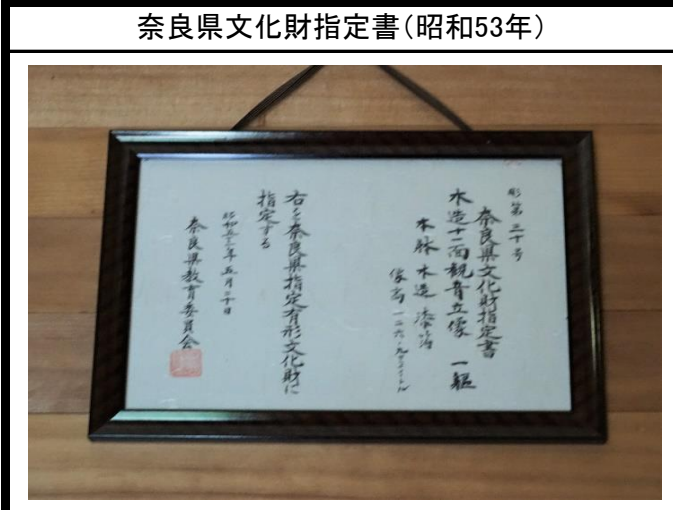 奈良県文化財指定書(昭和53年)
彫第三十号
奈良県文化財指定書
木造十一面観音立像 一軀
本躰 木造 漆箔
像高 一二六・九センチメートル
右を奈良県指定有形文化財に
指定する
昭和五三年五月二十日
奈良県教育委員会